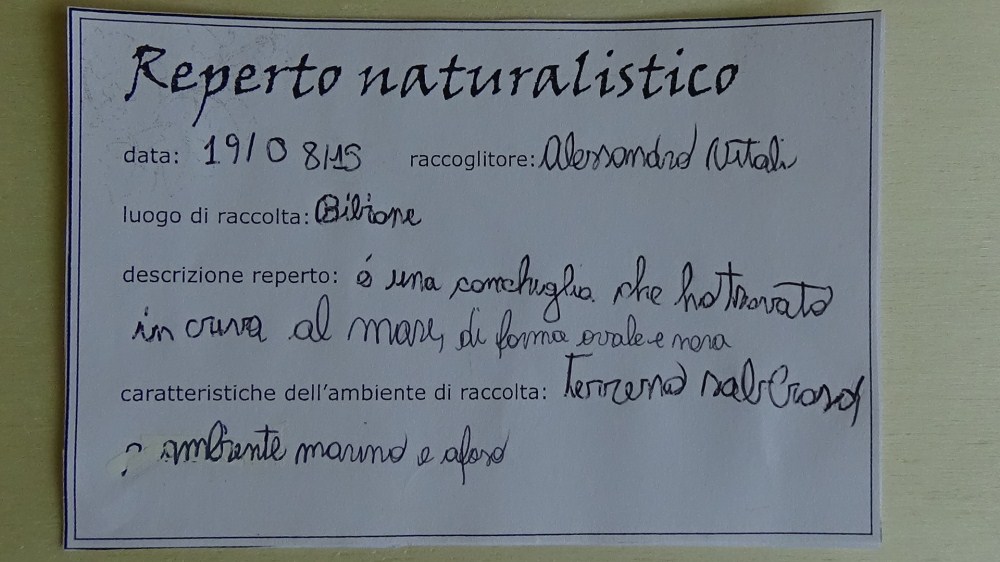 Reperto naturalistico
data: 19/08/15 raccoglitore: Alessandro Vitali
luogo di raccolta: Bibione
descrizione reperto: é una conchiglia che ho trovato
in riva al mare, di forma ovale e nera
caratteristiche dell'ambiente di raccolta: Terreno sabbioso,
ambiente marino e afoso